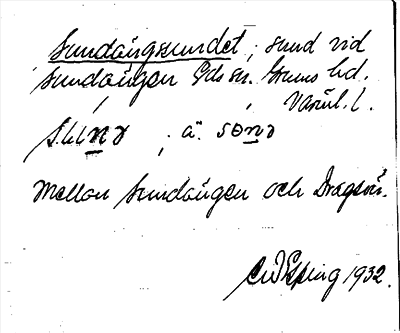 Sundängsundet, sund vid
Sundängen Eds sn. Grums hd.
Värml. l.
sund, ä. sønd
Mellan Sundängen och Dragsön.
1932.